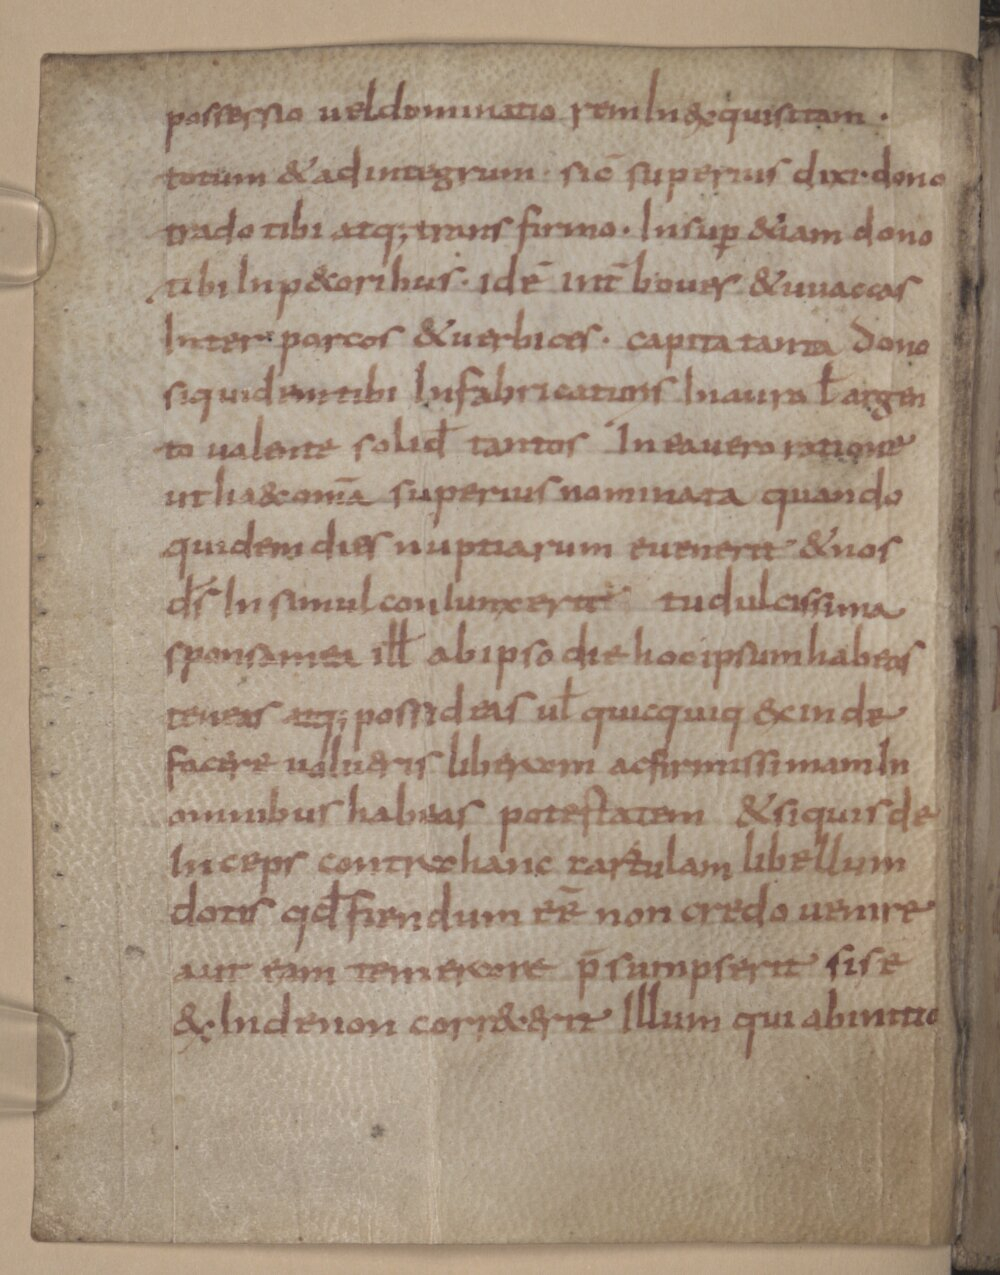 possessio uel dominatio rem inexquisitam ·
totum & ad integrum · sic̄ superius dixi · dono
trado tibi atq; transfirmo · Insup̄ &iam dono
tibi Inp&oribus · idē int̄ boues & uuaccas
Inter porcos & uerbices · capita tanta dono
siquidem tibi Infabricaturis Inauro ł argen
to ualente solid̄ tantos In ea uero ratione
ut ha&c om̄a superius nominata quando
quidem dies nuptiarum euenerit & nos
dš In simul coniunxerit tu dulcissima
sponsa mea ill̄ ab ipso die hoc ipsum habeas
teneas atq; possideas uł quicquiq &inde
facere uolueris liberam ac firmissimam In
omnibus habeas potestatem & si quis de
Inceps contra hanc cartulam libellum
dotis qd̄ fiendum eē non credo uenire
aut eam temerare p̄sumpserit si se
& Inde non corr&xerit Illum qui ab initio